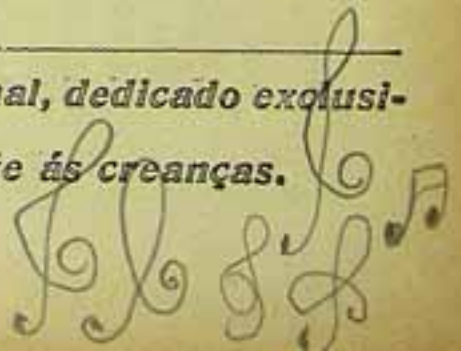 al, dedicado exclusi-
e ás creanças.